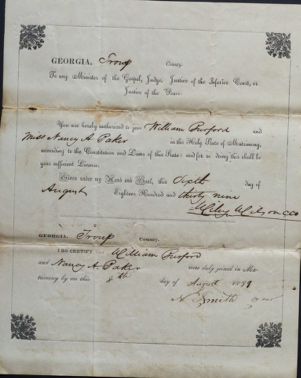 GEORGIA, Troup County.
To any Minister of the Gospel, Judge, Justice of the Inferior Court, or
Justice of the Peace.
You are hereby authorized to join William Purford and
Miss Nancy A Paker in the Holy State of Matrimony,
according to the Constitution and Laws of this State: and for so doing this shall be
your sufficient License.
Given under my Hand and Seal, this Sixth day of
August Eighteen Hundred and thirty nine
Wiley Wilson CCO
GEORGIA, Troup County.
I DO CERTIFY William Purford
and Nancy A Paker were duly joined in Mat-
rimony by me this 8th day of August 1839
Smith